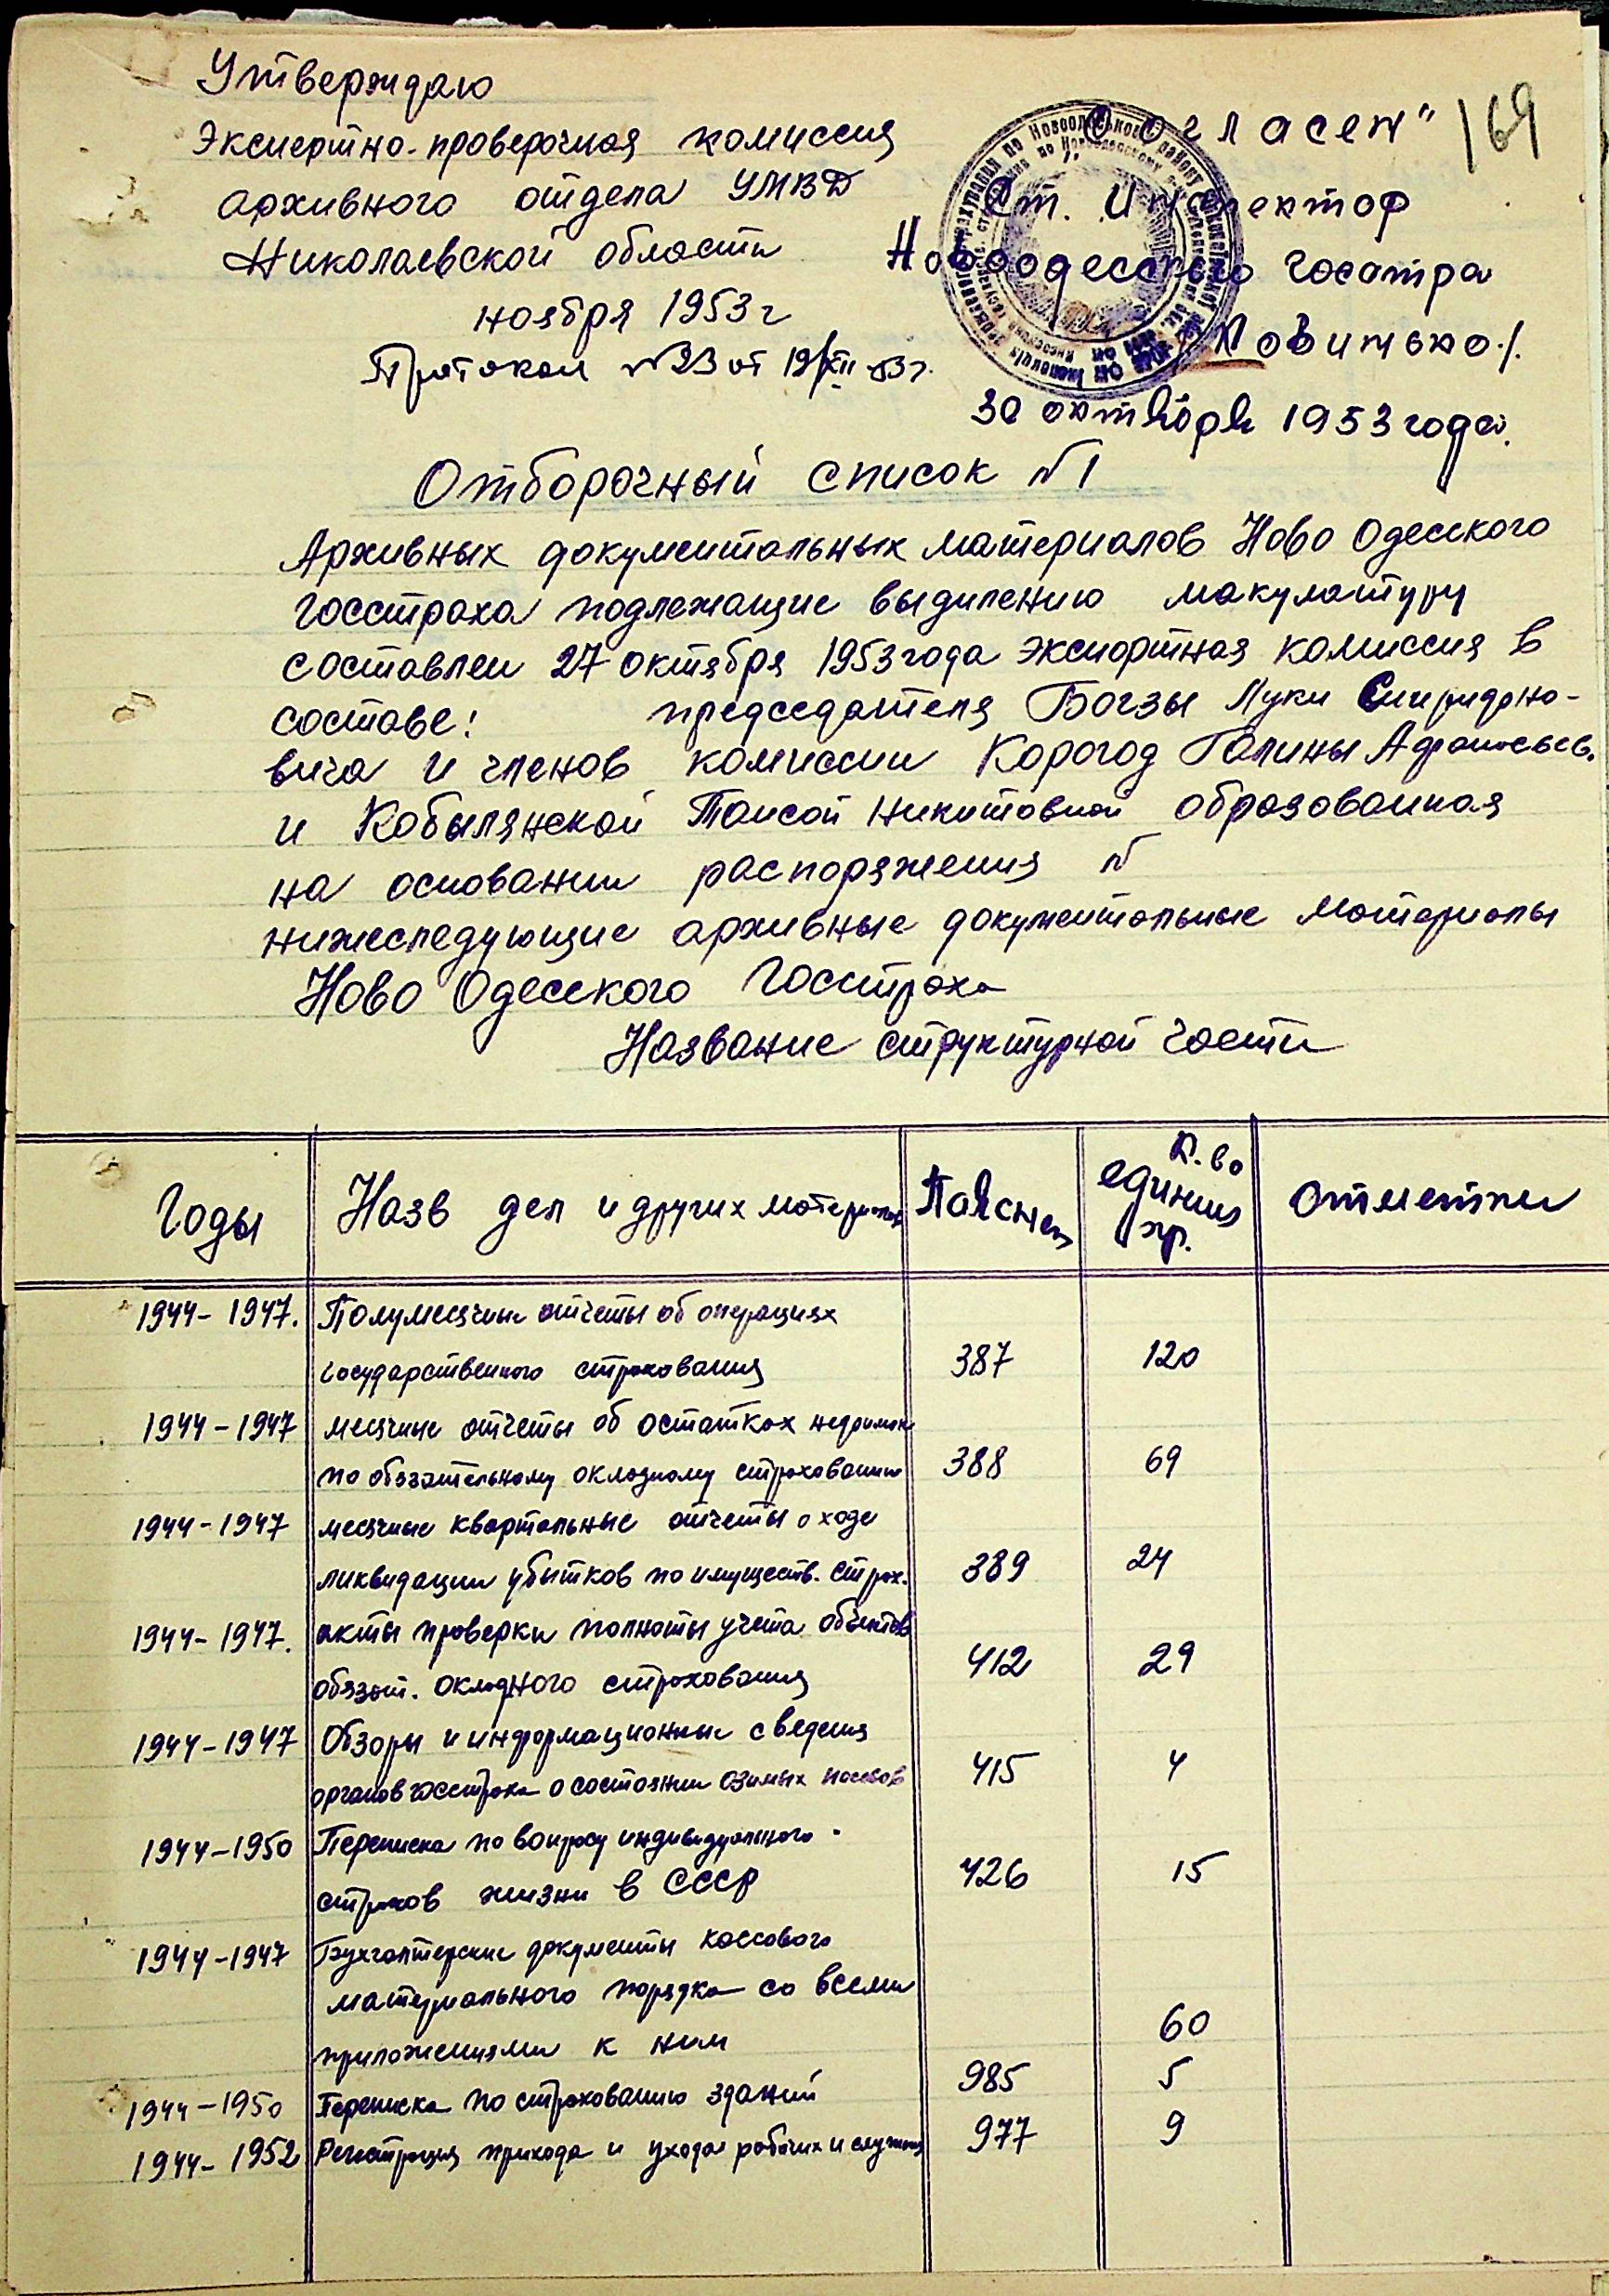 Утверждаю
Экспертно-проверочная комиссия
архивного отдела УМВД
Николаевской области
ноября 1953 г
Протокол №23 от 19/XII-53 г.
169
"Согласен"
Ст. Инспектор
Новоодесского Госстра
Ковинько./.
30 октября 1953 года.
Отборочный список №1
Архивных документальных материалов Ново Одесского
Госстраха подлежащие выделению макулатуру
составлен 27 октября 1953 года экспортная комиссия в
составе: председателя Богзы Луки Спиридоно-
вича и членов комиссии Корогод Галины Афанасьев.
и Кобылянской Таисой Никитовной образованная
на основании распоряжения №
нижеследующие архивные документальные материалы
Ново Одесского Госстраха
Название структурной части
Годы Назв дел и других материалов №№ К-во единиц хр. отметки
1944-1947. Полумесячные отчеты об операциях
государственного страхования 387 120
1944-1947 месячные отчеты об остатках недоимок
по обязательному окладному страхованию 388 69
1944-1947 месячные квартальные отчеты о ходе
ликвидации убытков по имуществ. страх. 389 24
1944-1947. акты проверки полноты учета объектов
обязат. окладного страхования 412 29
1944-1947 Обзоры и информационные сведения
органов госстраха о состоянии озимых посевов 415 4
1944-1950 Переписка по вопросу индивидуального
страхов жизни в СССР 426 15
1944-1947 Бухгалтерские документы кассового
материального порядка со всеми
приложениями к ним 60
1944-1950 Переписка по страхованию зданий 985 5
1944-1952 Регистрация прихода и ухода рабочих и служащ 977 9